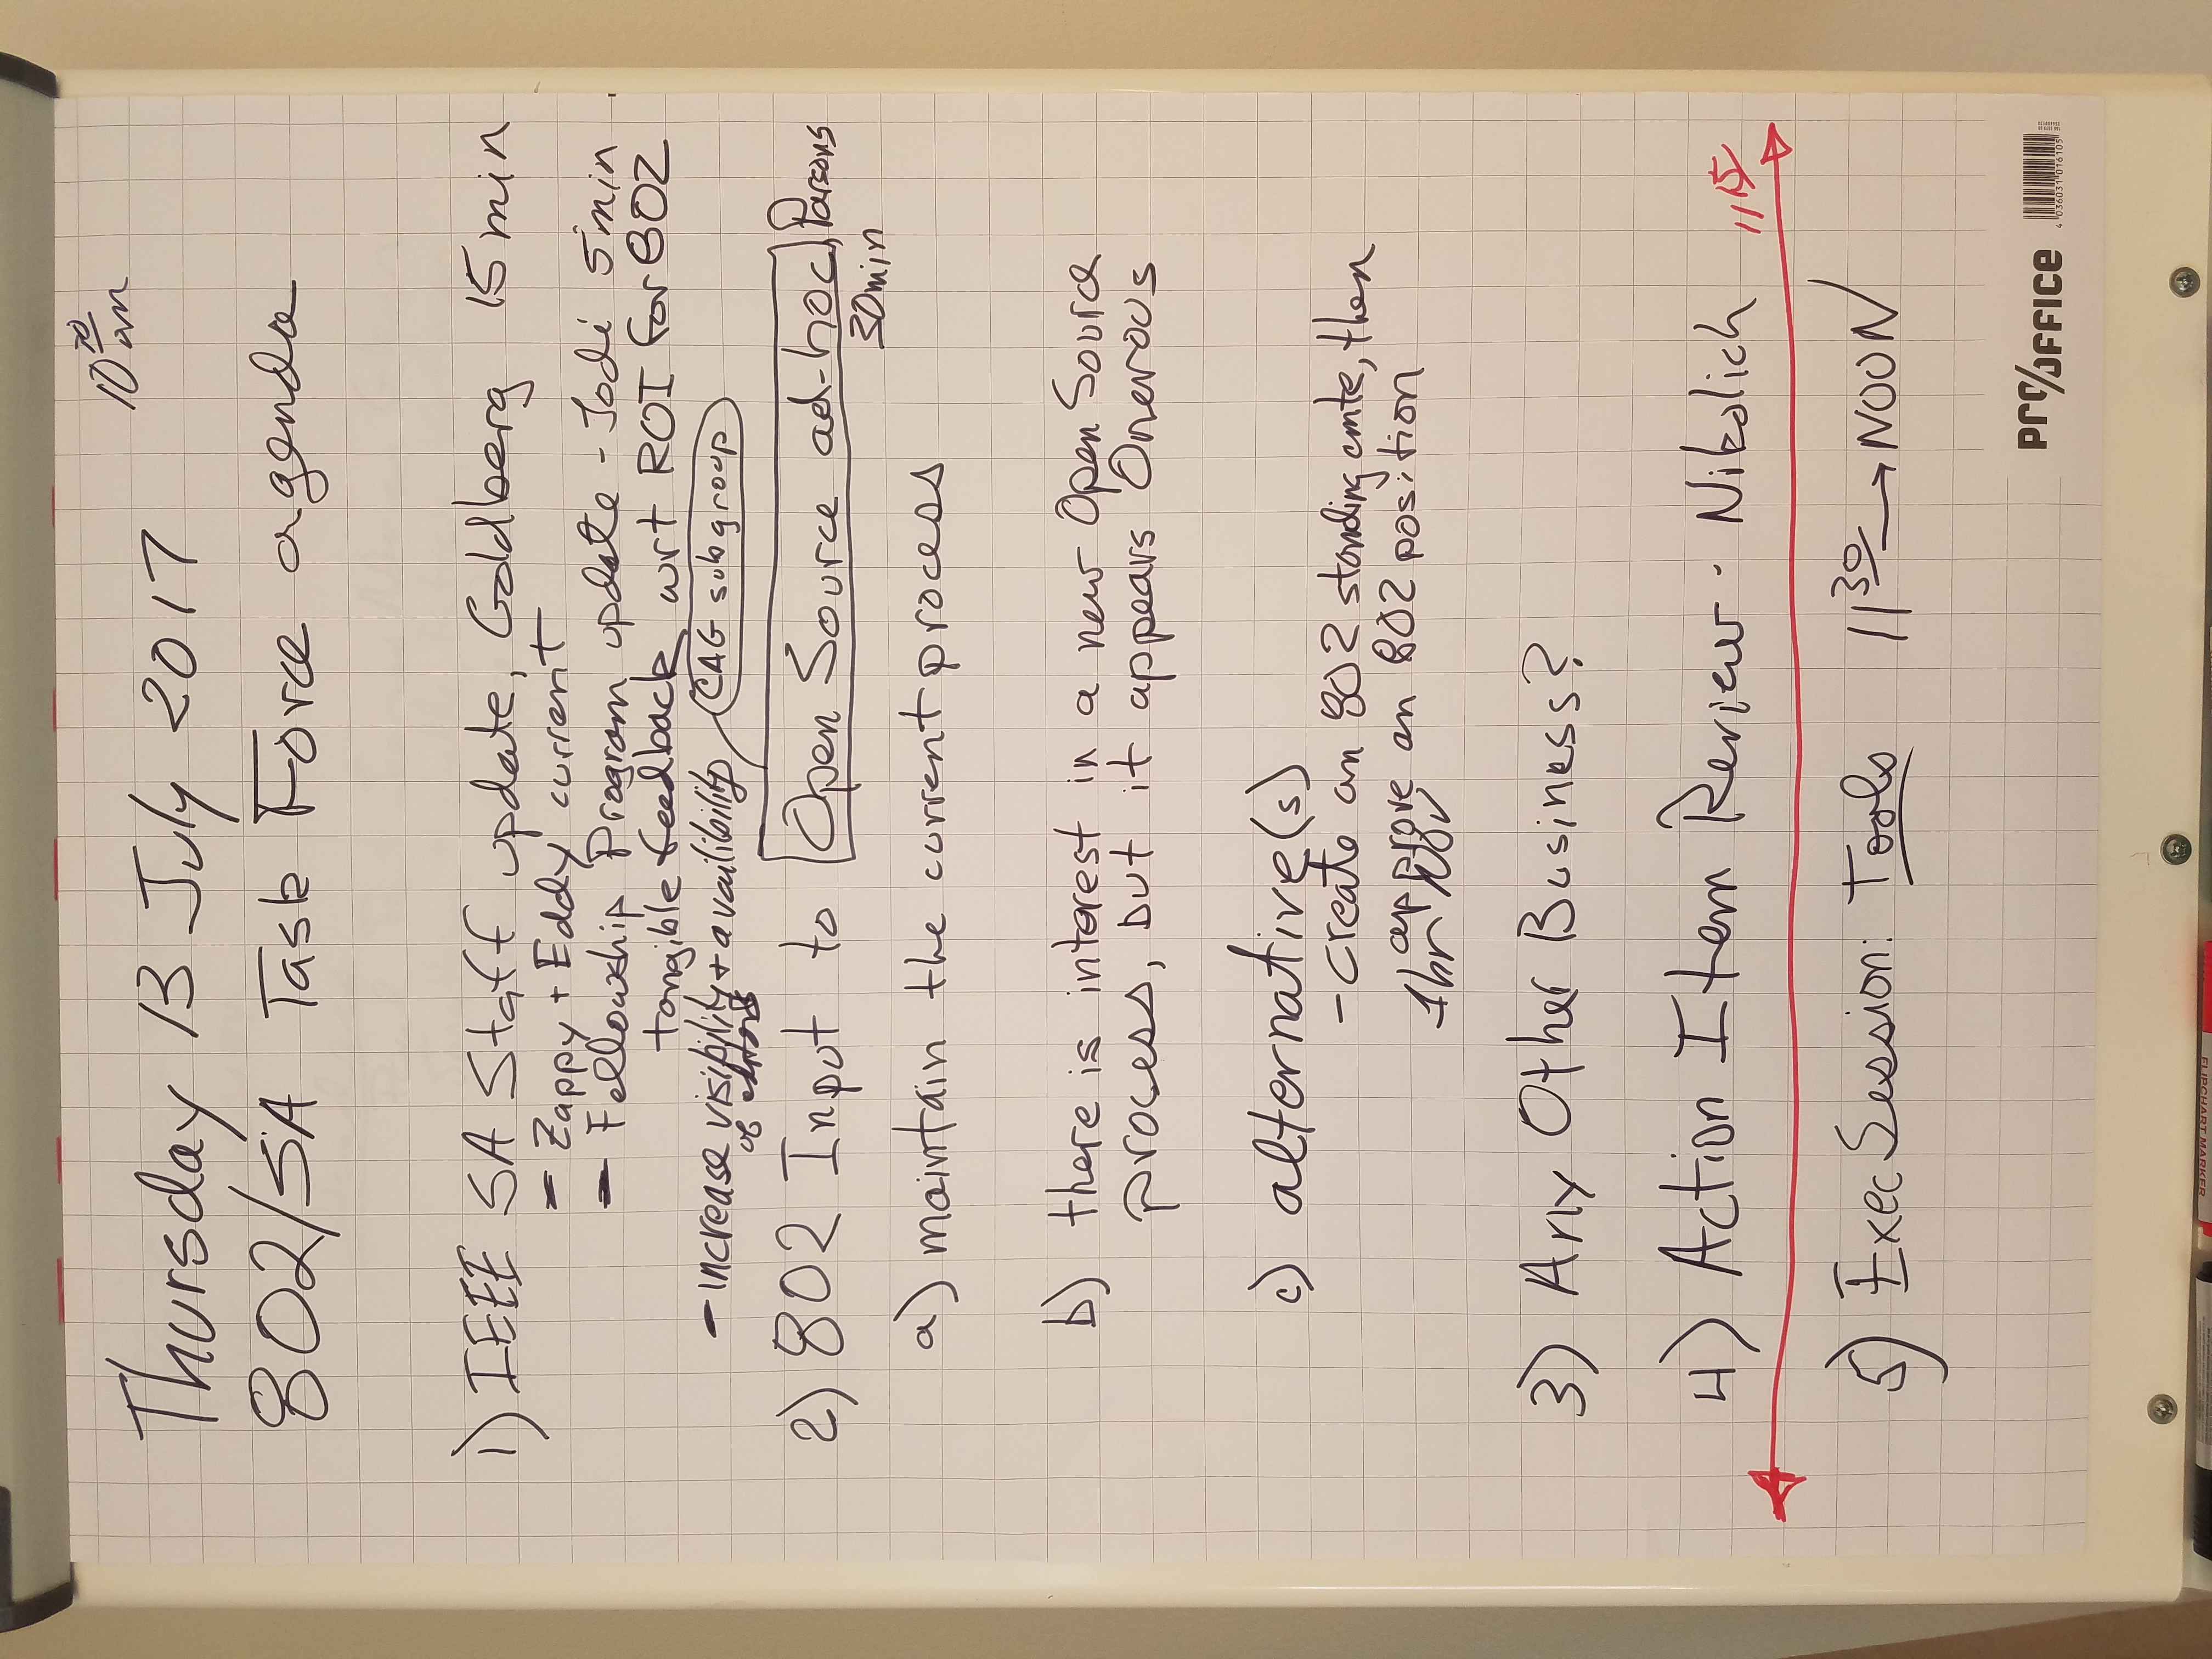 10 am
Thursday 13 July 2017
802/SA Task Force agenda
1) IEEE SA Staff update, Goldberg 15min
- Zappy + Eddy current
- Fellowship Program update - Jodi 5min
tangible feedback wrt ROI for 802
CAG subgroup
- increase visibility + availibility
of
2) 802 Input to Open Source ad-hoc, Parsons
30min
a) maintain the current process
b) there is interest in a new Open Source
process, but it appears Onerous
c) alternative(s)
- create an 802 standing cmte, then
approve an 802 position
1hr
3) Any Other Business?
4) Action Item Review. Nikolich 11 15
5) Exec Session: Tools 11 30 → NOON
PrOFFICE
4 036031 016105
FLIPCHART MARKER